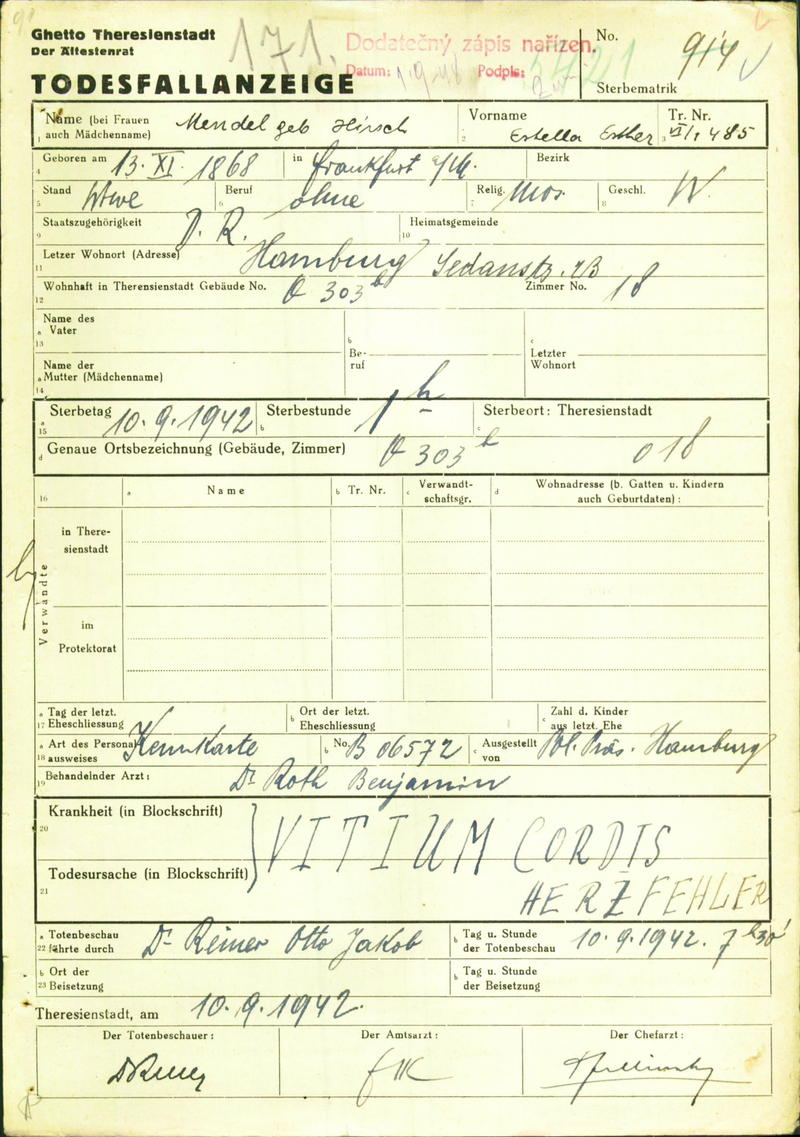 Ghetto Theresienstadt
Der Ältestenrat
171.
Dodatečný zápis nařízen.
Datum: Podpis:
No. 914
Sterbematrik
TODESFALLANZEIGE
Name (bei Frauen auch Mädchenname) Mendel geb Hirsch
1
Vorname Estella Esther
2
Tr. Nr. VII/1 485
3
Geboren am 13. XI. 1868 in Frankfurt a/M. Bezirk
4
Stand Wtwe Beruf ohne Relig. Mos. Geschl. W.
5 6 7 8
Staatszugehörigkeit D. R. Heimatsgemeinde
9 10
Letzer Wohnort (Adresse) Hamburg Sedanstr.
11
Wohnhaft in Theresienstadt Gebäude No. Q 303 b Zimmer No. 18
12
Name des Vater
a
13
b Beruf
c Letzter Wohnort
Name der Mutter (Mädchenname)
a
14
Sterbetag 10.9.1942 Sterbestunde 1 h Sterbeort: Theresienstadt
a 15 b c
d Genaue Ortsbezeichnung (Gebäude, Zimmer) Q 303 b 018
16 a Name b Tr. Nr. c Verwandtschaftsgr. d Wohnadresse (b. Gatten u. Kindern auch Geburtdaten):
Verwandte
in Theresienstadt
im Protektorat
a Tag der letzt. Eheschliessung b Ort der letzt. Eheschliessung c Zahl d. Kinder aus letzt. Ehe
17
a Art des Personalausweises Kennkarte b No. B 06572 c Ausgestellt von Pol. Präs. Hamburg
18
Behandelnder Arzt: Dr Roth Benjamin
19
Krankheit (in Blockschrift) VITIUM CORDIS
20
Todesursache (in Blockschrift) HERZFEHLER
21
a Totenbeschau führte durch Dr Reiner Otto Jakob b Tag u. Stunde der Totenbeschau 10.9.1942. 7 h 30'
22
b Ort der Beisetzung b Tag u. Stunde der Beisetzung
23
Theresienstadt, am 10.9.1942.
Der Totenbeschauer: Der Amtsarzt: Der Chefarzt: